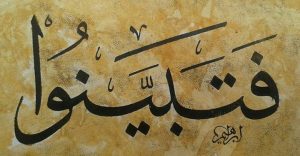 فَتَبَيَّنُوا